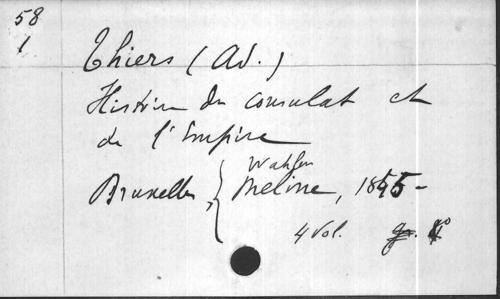 58
1
Thiers (Ad.)
Histoire du consulat et
de l'Empire
Wahlen
Bruxelles, Meline, 1845-
4 Vol. gr. 8°